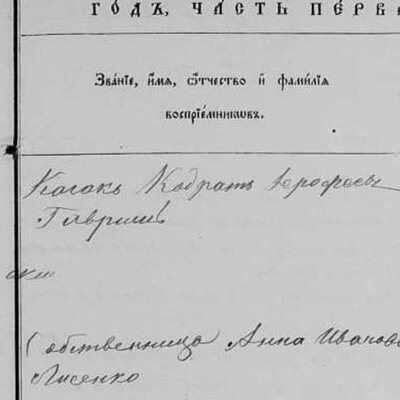 ГО́ДЪ, ЧА́СТЬ ПЕ́РВА
Зва́нїе, и҆́мѧ, ѻ҆́тчество и҆ фами́лїѧ
воспрїе́мникωвъ.
Козакъ Кодратъ Іерофеевъ
Гавришъ
Собственница Анна Ивано
Лисенко